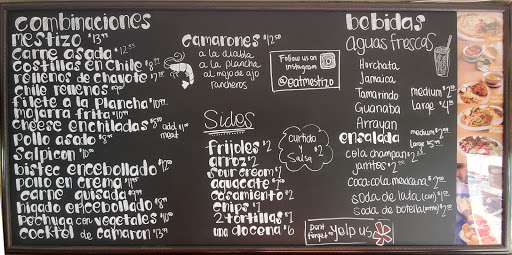 combinaciones
mestizo $13.
carne asada $12.
costillas en chile $8.
rellenos de chayote $7.
chile rellenos $9
filete a la plancha $10.
mojarra frita $10.
cheese enchiladas $5 add $1. meat
pollo asado
salpicon $10.
bistec encebollado $12
pollo en crema $11
carne guisada $9
higado encebollado $8
pechuga con vegetales $10
cocktol de camaron $13
camarones $12.50
a la diabla
a la plancha
al mojo de ajo
rancheros
Follow us on
instagram
@eatmestizo
Sides
frijoles $2
arroz $2
sour cream $1
aguacate $2
casamiento $2
chips $1
2 tortillas $1
una docena $6
curtido
$2
Salsa
dont forget to yelp us
bebidas
aguas frescas
Horchata
Jamaica
Tamarindo
Guanaba
Arrayan
medium $2
Large $4.
ensalada medium $2
Large $5
cola champan $2
jarritos $2.
coca-cola mexicana $2
soda de lata (can) $1
soda de botella $2